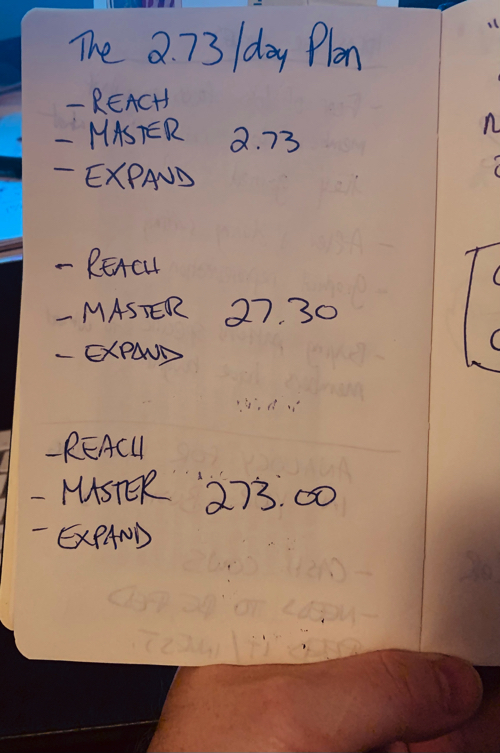 The 2.73/day Plan
- REACH
- MASTER 2.73
- EXPAND
- REACH
- MASTER 27.30
- EXPAND
- REACH
- MASTER 273.00
- EXPAND